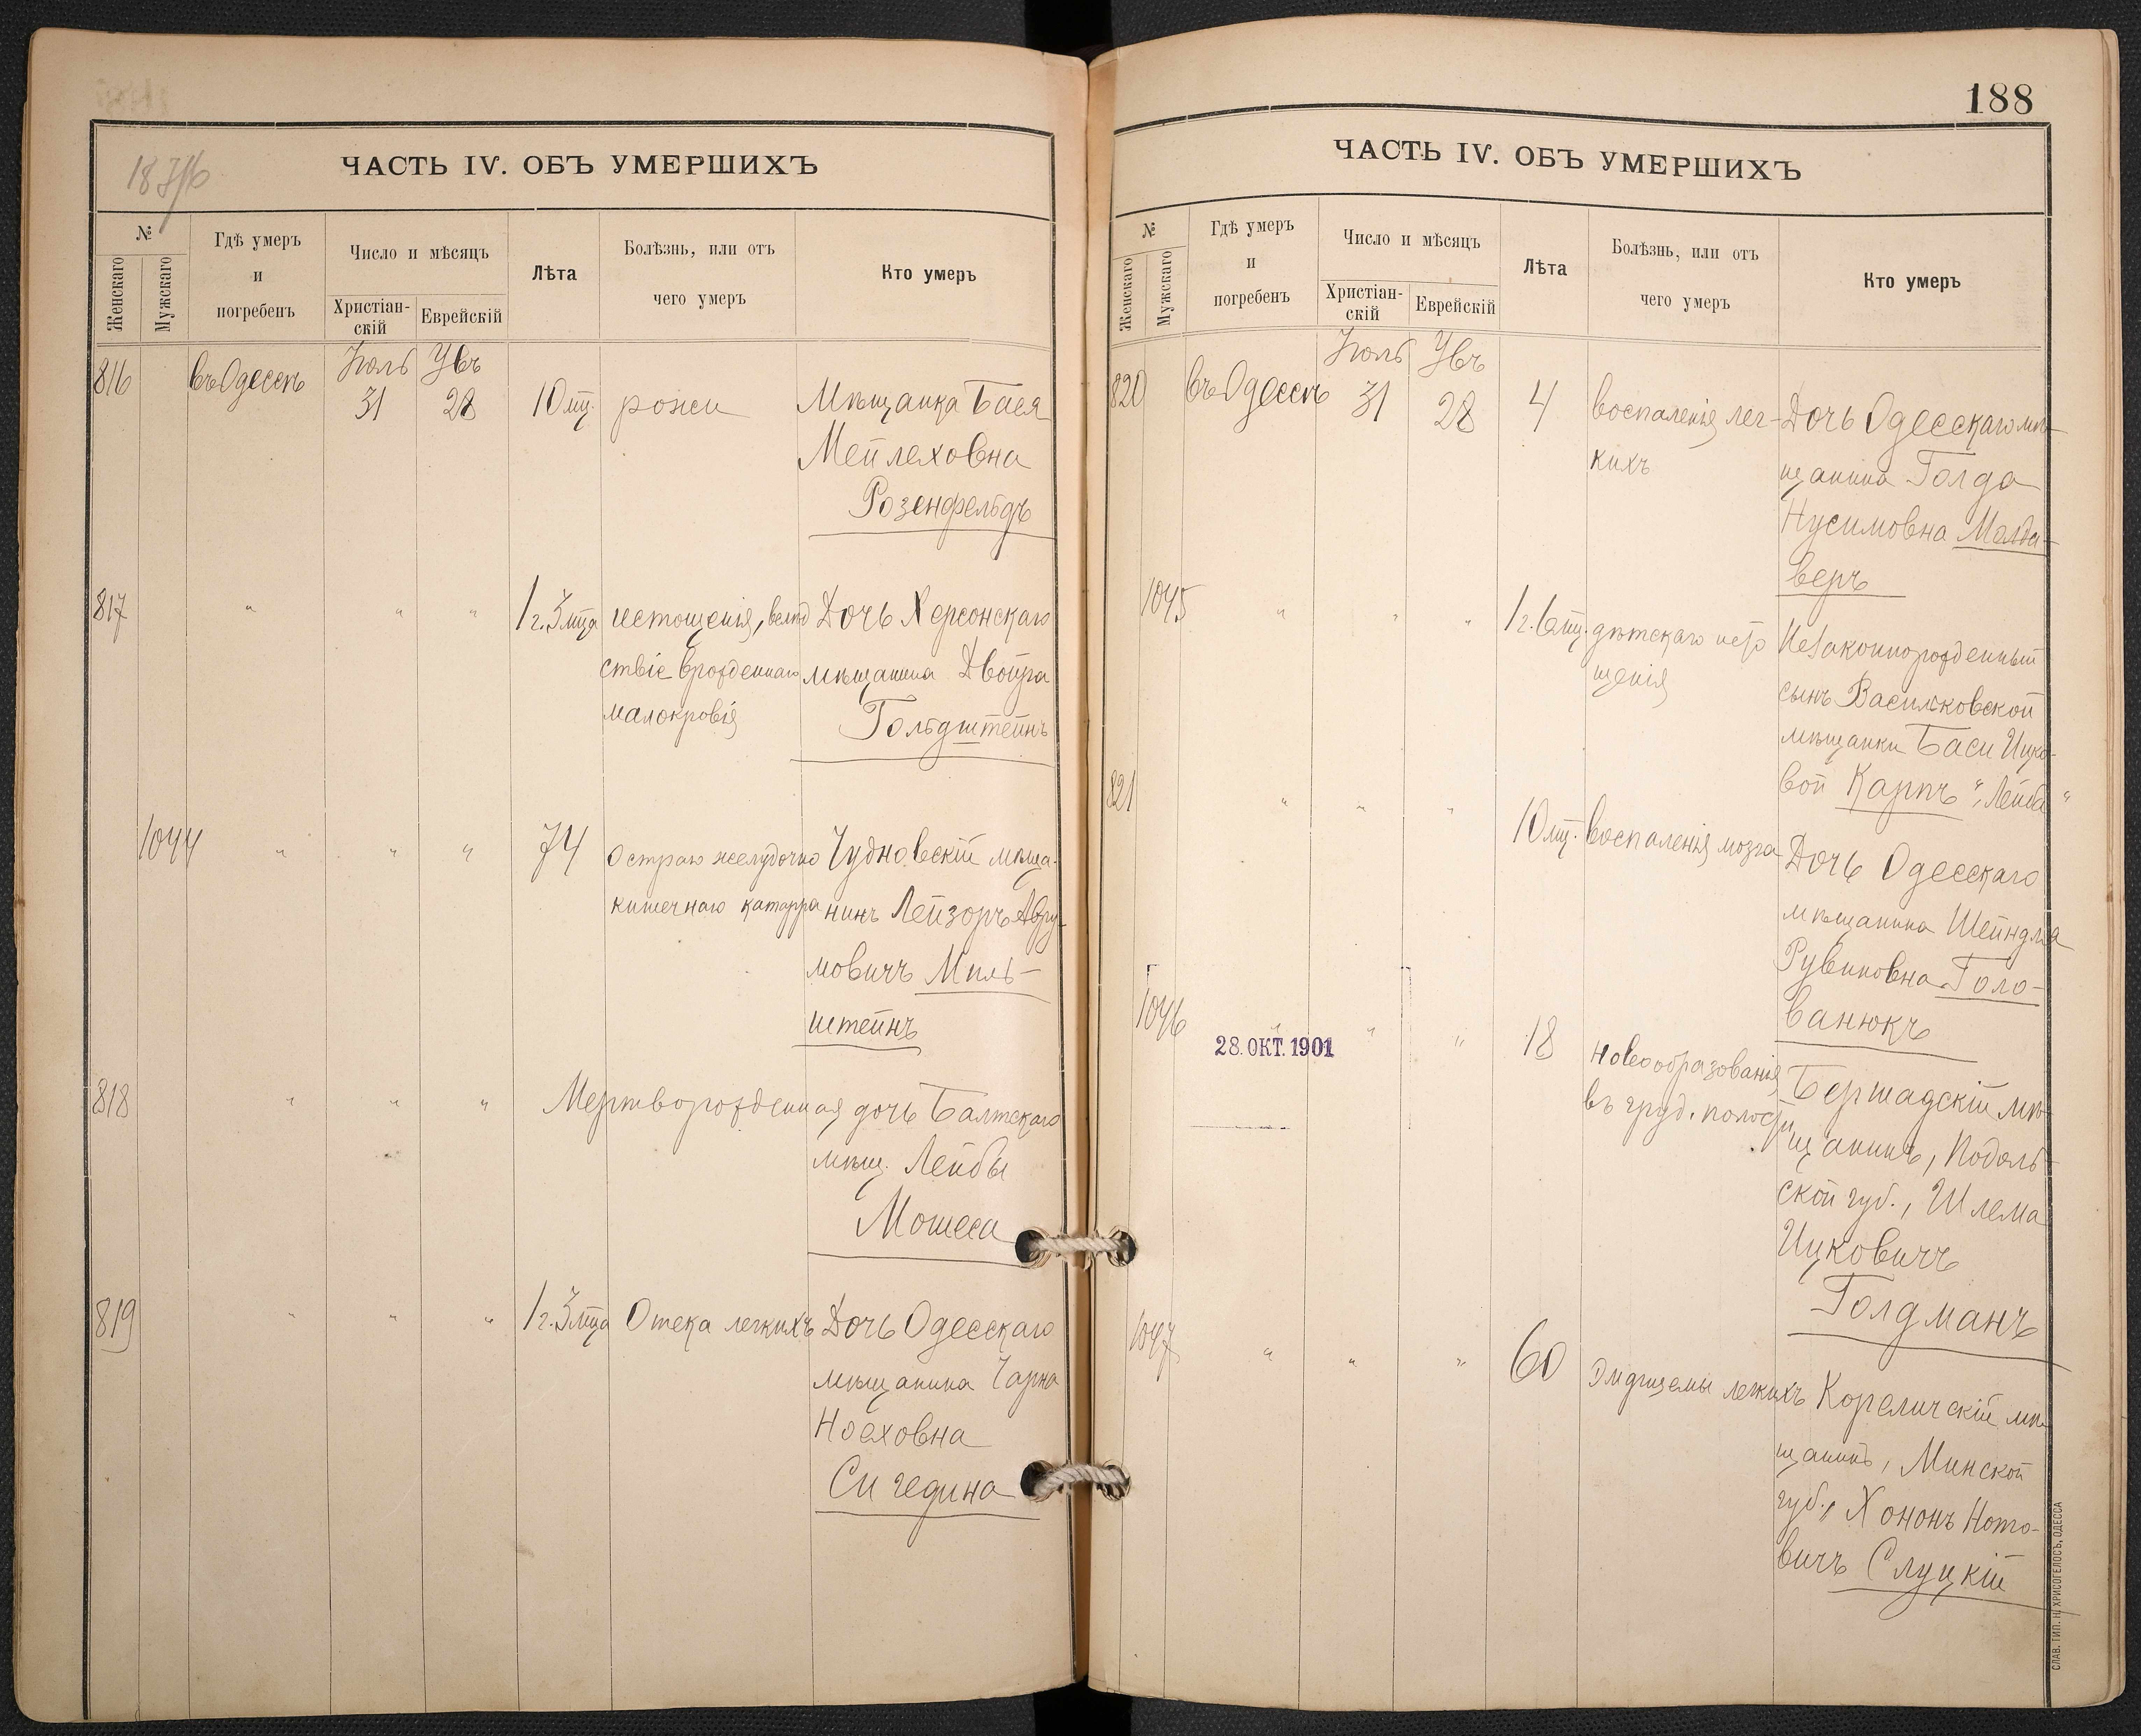 1876
ЧАСТЬ IV. ОБЪ УМЕРШИХЪ
№
Женскаго
Мужскаго
Гдѣ умеръ
и
погребенъ
Число и мѣсяцъ
Христіан-
скій
Еврейскій
Лѣта
Болѣзнь, или отъ
чего умеръ
Кто умеръ
816
въ Одессѣ
Іюль
31
Увъ
28
10 мц.
рожи
Мѣщанка Бася
Мейлеховна
Розенфельдъ
817
"
"
"
1 г. 3 мца
истощенія, вслѣд
ствіе врожденнаго
малокровія
Дочь Херсонскаго
мѣщанина Двойра
Гольдштейнъ
1044
"
"
"
74
Остраго желудочно
кишечнаго катарра
Чудновскій мѣща-
нинъ Лейзоръ Авру-
мовичъ Миль-
штейнъ
818
"
"
"
Мертворожденная дочь Балтскаго
мѣщ. Лейбы
Мошеса
819
"
"
"
1 г. 3 мца
Отека легкихъ
Дочь Одесскаго
мѣщанина Чарна
Ноеховна
Сигедина
188
ЧАСТЬ IV. ОБЪ УМЕРШИХЪ
№
Женскаго
Мужскаго
Гдѣ умеръ
и
погребенъ
Число и мѣсяцъ
Христіан-
скій
Еврейскій
Лѣта
Болѣзнь, или отъ
чего умеръ
Кто умеръ
820
въ Одессѣ
Іюль
31
Увъ
28
4
воспаленія лег-
кихъ
Дочь Одесскаго мѣ-
щанина Голда
Нусимовна Малда-
веръ
1045
"
"
"
1 г. 6 мц.
дѣтскаго исто
щенія
Незаконнорожденный
сынъ Васильковской
мѣщанки Баси Ицко-
вой Карпъ "Лейба"
821
"
"
"
10 мц.
воспаленія мозга
Дочь Одесскаго
мѣщанина Шейндля
Рувиновна Голо-
ванюкъ
1046
"
28. ОКТ. 1901
"
"
18
новообразованія
въ груд. полости
Бершадскій мѣ-
щанинъ, Подоль-
ской губ., Шлема
Ицковичъ
Голдманъ
1047
"
"
"
60
Эмфиземы легкихъ
Кореличскій мѣ-
щанинъ, Минской
губ., Хононъ Ното-
вичъ Слуцкій
СЛАВ. ТИП. Н. ХРИСОГЕЛОСЪ, ОДЕССА